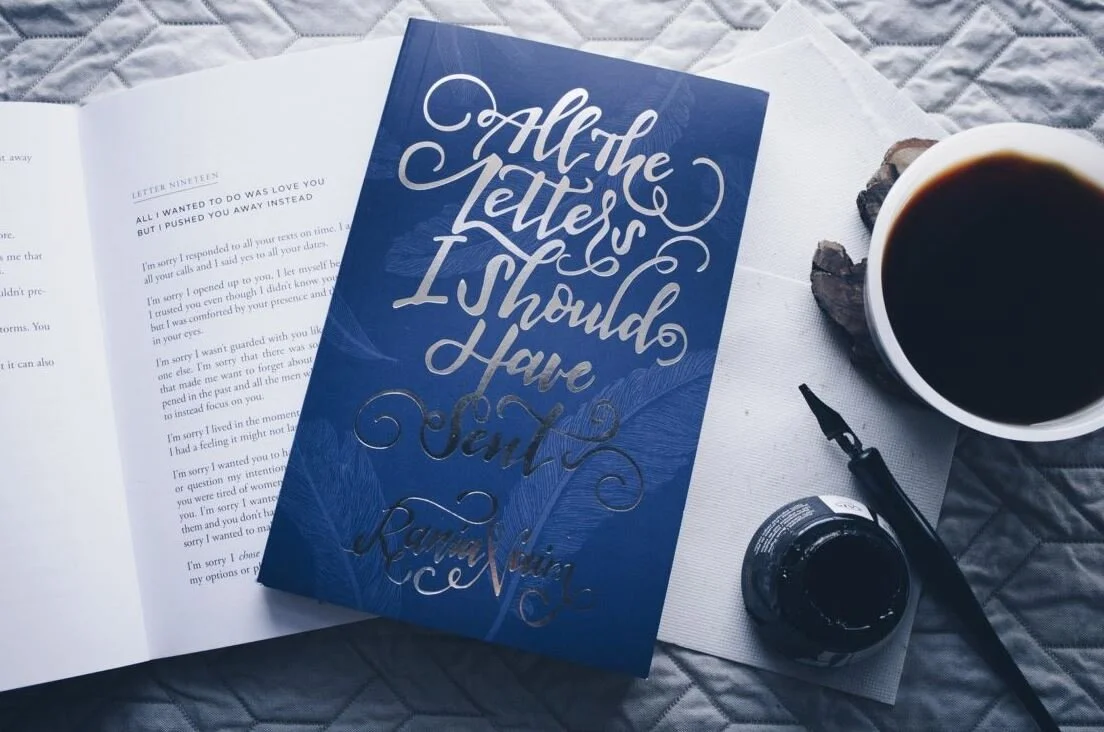 it away
ote.
s me that
uldn't pre-
torms. You
t it can also
LETTER NINETEEN
ALL I WANTED TO DO WAS LOVE YOU
BUT I PUSHED YOU AWAY INSTEAD
I'm sorry I responded to all your texts on time. I a
all your calls and I said yes to all your dates.
I'm sorry I opened up to you, I let myself be
I trusted you even though I didn't know you
but I was comforted by your presence and th
in your eyes.
I'm sorry I wasn't guarded with you lik
one else. I'm sorry that there was so
that made me want to forget about
pened in the past and all the men w
to instead focus on you.
I'm sorry I lived in the moment
I had a feeling it might not la
I'm sorry I wanted you to ha
or question my intention
you were tired of women
you. I'm sorry I wante
them and you don't ha
sorry I wanted to ma
I'm sorry I chose
my options or pl
All The
Letters
I Should
Have
Sent
Rania Naim